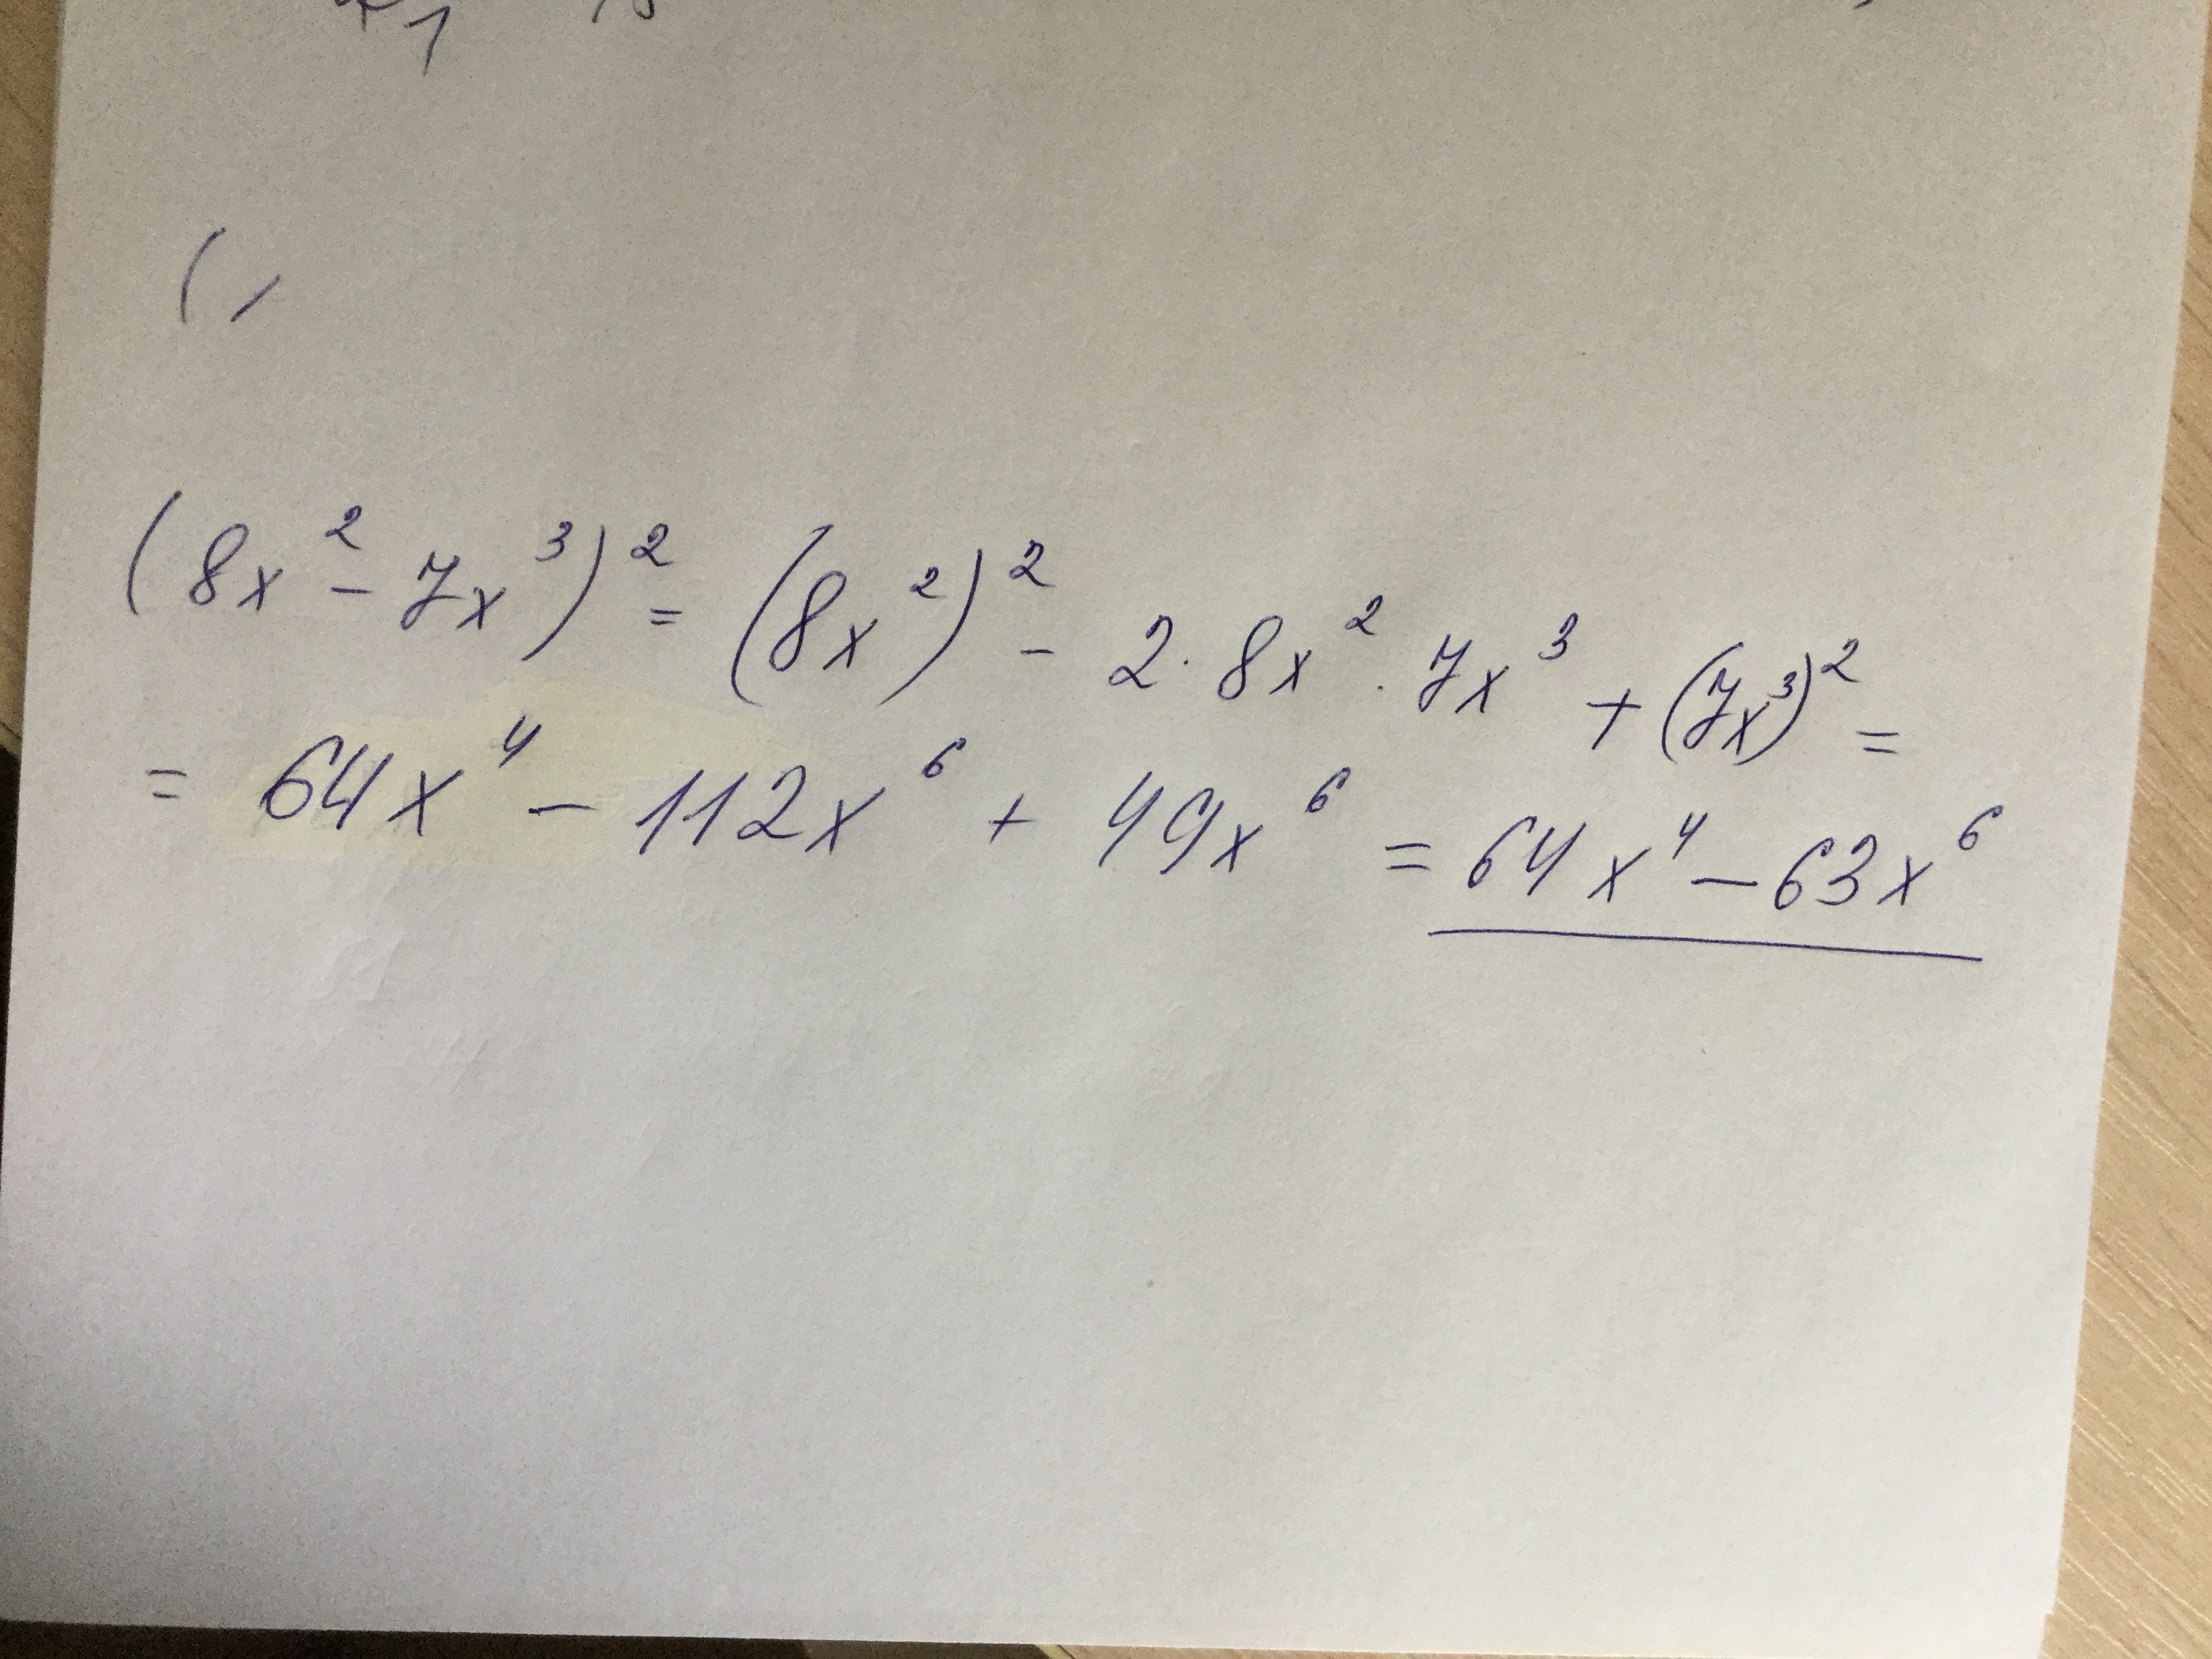 (8x² - 7x³)² = (8x²)² - 2 · 8x² · 7x³ + (7x³)² =
= 64x⁴ - 112x⁶ + 49x⁶ = 64x⁴ - 63x⁶